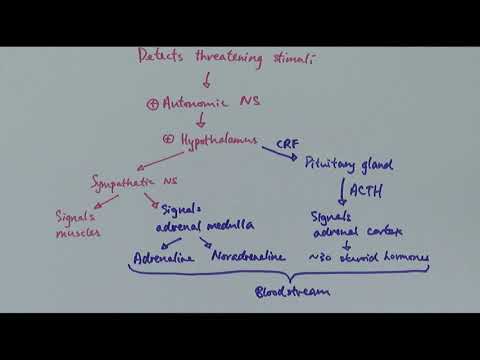 Detects threatening stimuli
⊕ Autonomic NS
⊕ Hypothalamus
CRF
Pituitary gland
Sympathetic NS
ACTH
Signals
muscles
Signals
adrenal medulla
Signals
adrenal cortex
Adrenaline
Noradrenaline
~30 steroid hormones
Bloodstream